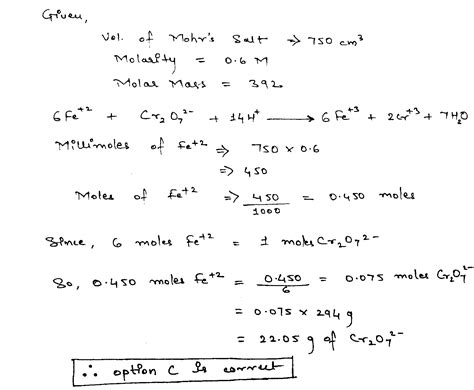 Given,
Vol. of Mohr's Salt ⇒ 750 cm³
Molarity = 0.6 M
Molar Mass = 392
6Fe⁺² + Cr₂O₇²⁻ + 14H⁺ ⟶ 6Fe⁺³ + 2Cr⁺³ + 7H₂O
Millimoles of Fe⁺² ⇒ 750 × 0.6
⇒ 450
Moles of Fe⁺² ⇒ 450/1000 = 0.450 moles
Since, 6 moles Fe⁺² = 1 moles Cr₂O₇²⁻
So, 0.450 moles Fe⁺² = 0.450/6 = 0.075 moles Cr₂O₇²⁻
= 0.075 × 294 g
= 22.05 g of Cr₂O₇²⁻
∴ option C is correct